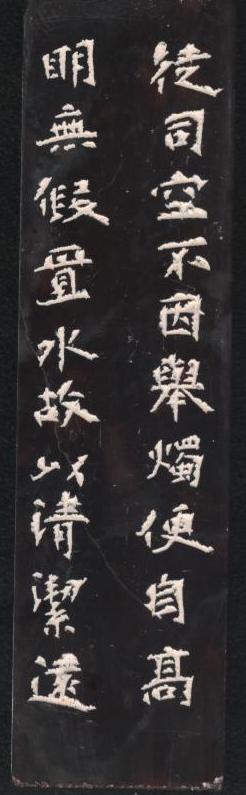 徒司空不因舉燭便自高
明無假置水故以清潔遠